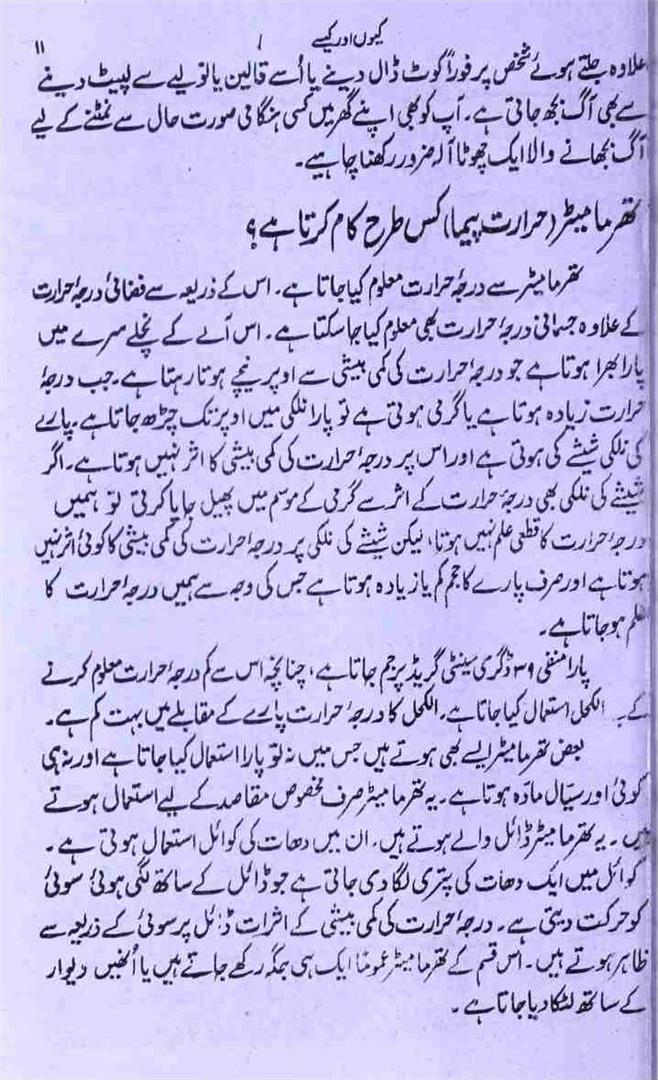 کیوں اور کیسے
۱۱
علاوہ جلتے ہوئے شخص پر فوراً کوٹ ڈال دینے یا اُسے قالین یا تولیے سے لپیٹ دینے
سے بھی آگ بجھ جاتی ہے۔ آپ کو بھی اپنے گھر میں کسی ہنگامی صورت حال سے نمٹنے کے لیے
آگ بجھانے والا ایک چھوٹا آلہ ضرور رکھنا چاہیے۔
تھرمامیٹر (حرارت پیما) کس طرح کام کرتا ہے؟
تھرمامیٹر سے درجۂ حرارت معلوم کیا جاتا ہے۔ اس کے ذریعہ سے فضائی درجۂ حرارت
کے علاوہ جسمانی درجۂ حرارت بھی معلوم کیا جا سکتا ہے۔ اس آلے کے نچلے سرے میں
پارا بھرا ہوتا ہے جو درجۂ حرارت کی کمی بیشی سے اوپر نیچے ہوتا رہتا ہے۔ جب درجۂ
حرارت زیادہ ہوتا ہے یا گرمی ہوتی ہے تو پارا نلکی میں اوپر تک چڑھ جاتا ہے۔ پارے
کی نلکی شیشے کی ہوتی ہے اور اس پر درجۂ حرارت کی کمی بیشی کا اثر نہیں ہوتا ہے۔ اگر
شیشے کی نلکی بھی درجۂ حرارت کے اثر سے گرمی کے موسم میں پھیل جایا کرتی تو ہمیں
درجۂ حرارت کا قطعی علم نہیں ہوتا، لیکن شیشے کی نلکی پر درجۂ حرارت کی کمی بیشی کا کوئی اثر نہیں
ہوتا ہے اور صرف پارے کا حجم کم یا زیادہ ہوتا ہے جس کی وجہ سے ہمیں درجۂ حرارت کا
علم ہو جاتا ہے۔
پارا منفی ۳۹ ڈگری سینٹی گریڈ پر جم جاتا ہے، چنانچہ اس سے کم درجۂ حرارت معلوم کرنے
کے الکحل استعمال کیا جاتا ہے۔ الکحل کا درجۂ حرارت پارے کے مقابلے میں بہت کم ہے۔
بعض تھرمامیٹر ایسے بھی ہوتے ہیں جس میں نہ تو پارا استعمال کیا جاتا ہے اور نہ ہی
کوئی اور سیّال مادّہ ہوتا ہے۔ یہ تھرمامیٹر صرف مخصوص مقاصد کے لیے استعمال ہوتے
ہیں۔ یہ تھرمامیٹر ڈائل والے ہوتے ہیں، ان میں دھات کی کوائل استعمال ہوتی ہے۔
کوائل میں ایک دھات کی پتری لگا دی جاتی ہے جو ڈائل کے ساتھ لگی ہوئی سوئی
کو حرکت دیتی ہے۔ درجۂ حرارت کی کمی بیشی کے اثرات ڈائل پر سوئی کے ذریعہ سے
ظاہر ہوتے ہیں۔ اس قسم کے تھرمامیٹر عموماً ایک ہی جگہ رکھے جاتے ہیں یا اُنھیں دیوار
کے ساتھ لٹکا دیا جاتا ہے۔